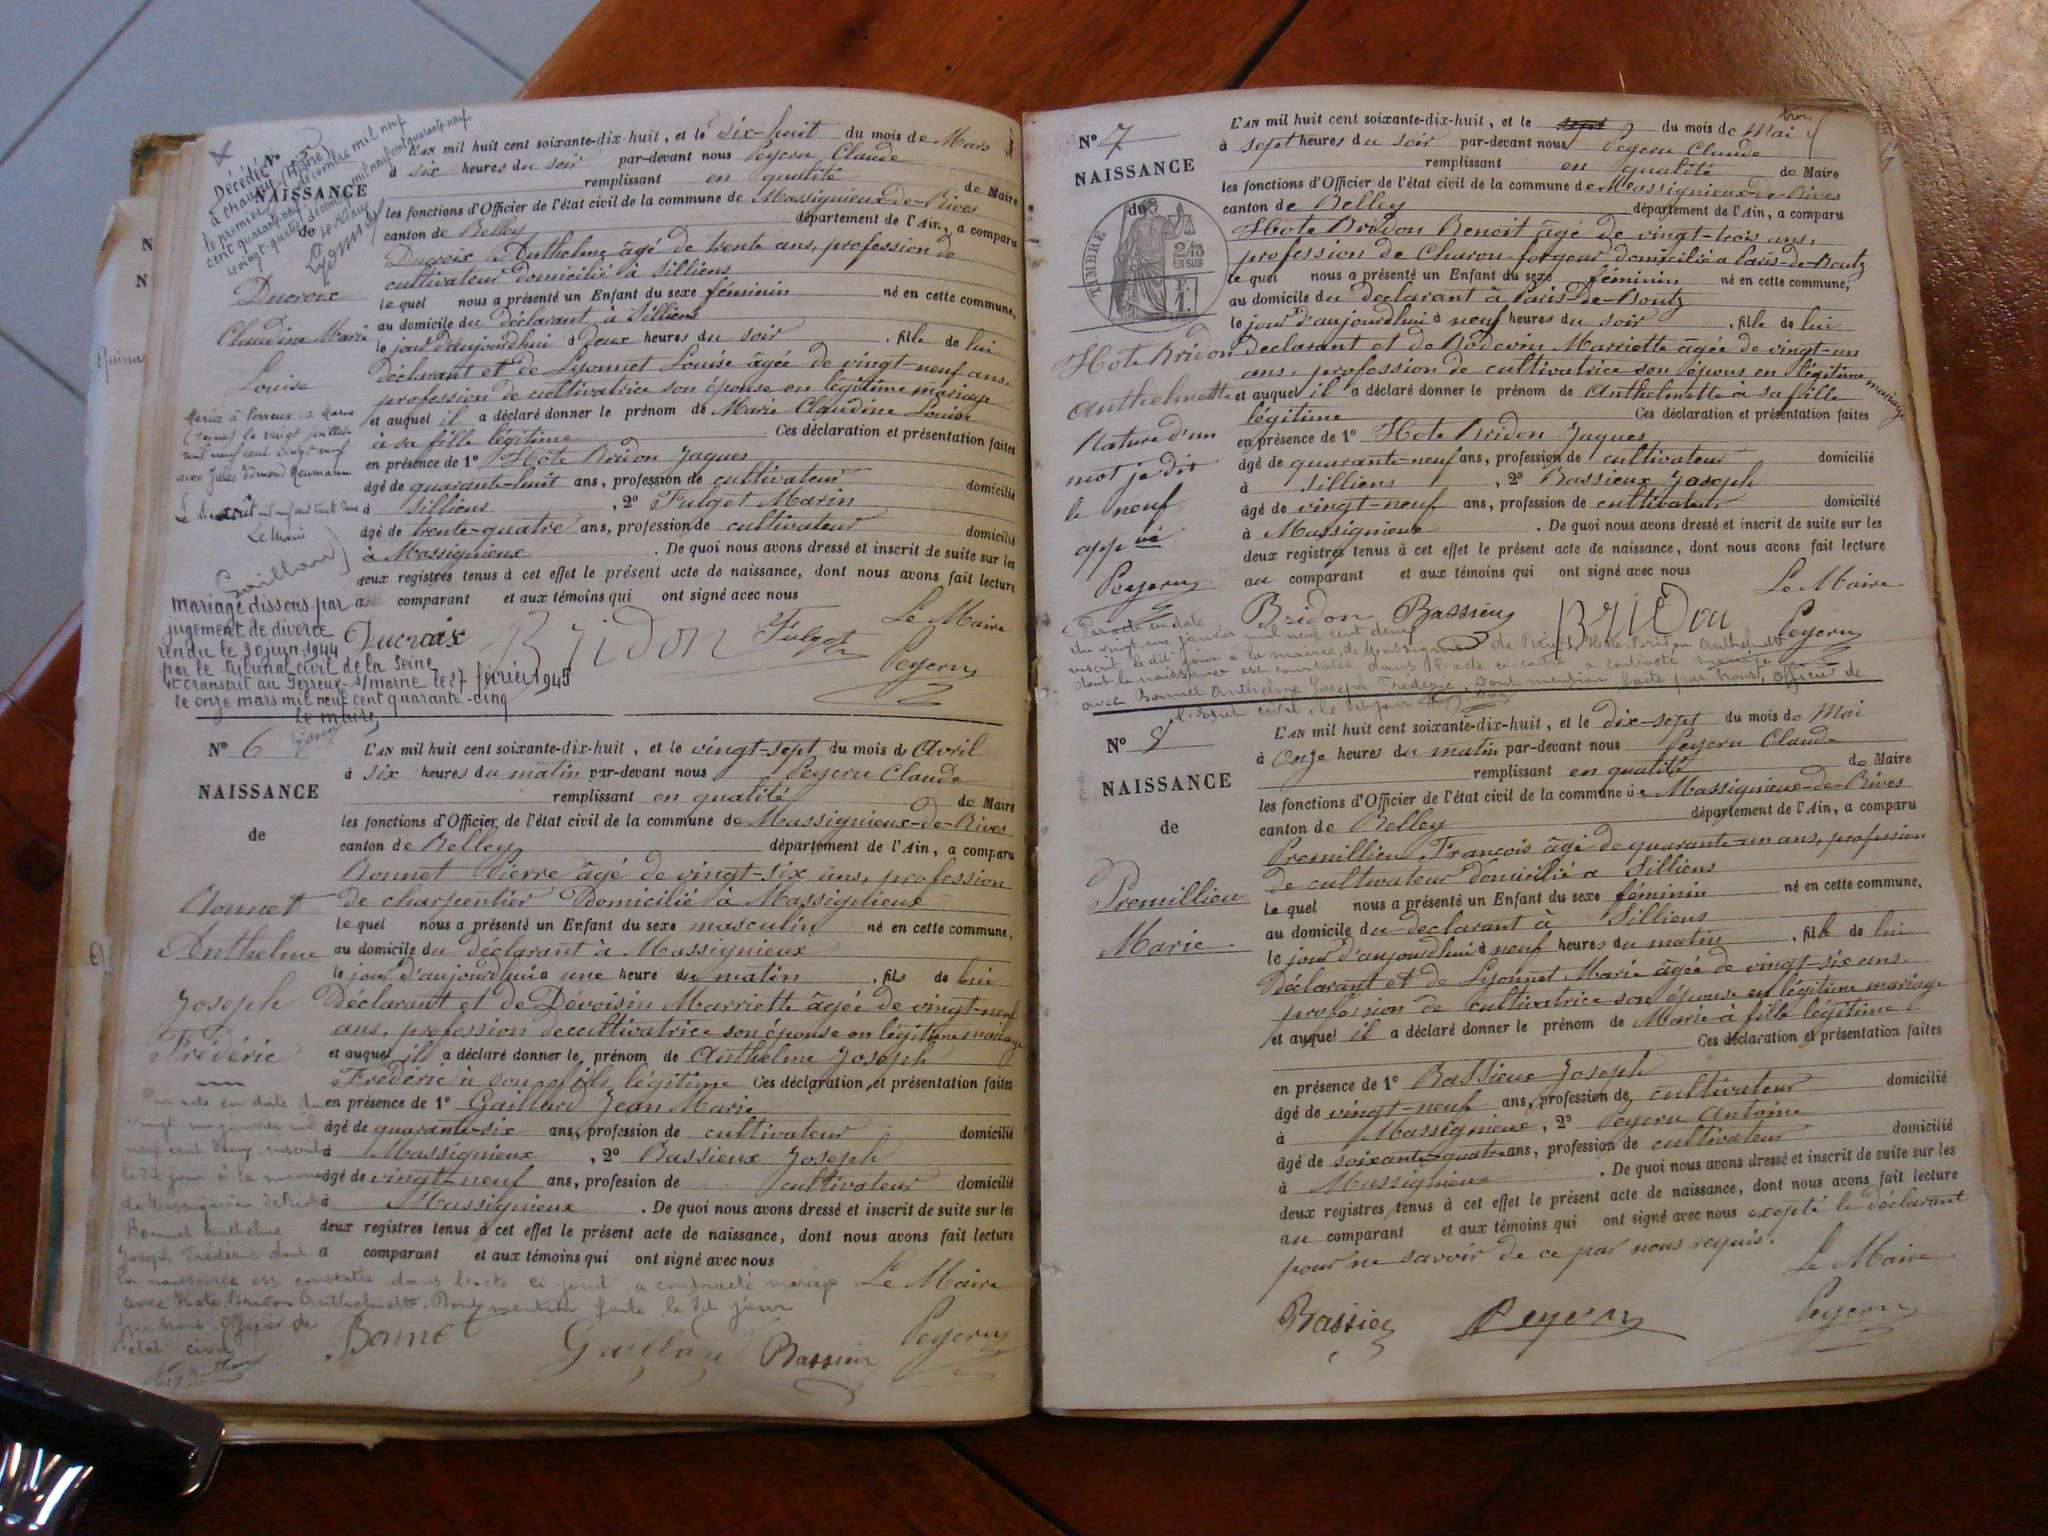 Décédée
à chauny (Aisne)
le premier décembre mil neuf
cent quarante neuf
NAISSANCE
de
Ducroix
Claudine Marie
Louise
L'AN mil huit cent soixante-dix-huit, et le dix-huit du mois de Mars
à six heures du soir par-devant nous Peyeru Claude
remplissant en qualité de Maire
les fonctions d'Officier de l'état civil de la commune de Massignieux-de-Rives
canton de Belley département de l'Ain, a comparu
Ducroix Anthelme âgé de trente ans, profession de
cultivateur domicilié à Silliens
le quel nous a présenté un Enfant du sexe féminin né en cette commune,
au domicile du déclarant à Silliens
le jour d'aujourd'hui à deux heures du soir, fille de lui
déclarant et de Lyonnet Louise âgée de vingt-neuf ans
profession de cultivatrice son épouse en légitime mariage
et auquel il a déclaré donner le prénom de Marie Claudine Louise
à sa fille légitime Ces déclaration et présentation faites
en présence de 1° Hote Bridon Jaques
âgé de quarante-huit ans, profession de cultivateur domicilié
à Silliens, 2° Fulget Marin
âgé de trente-quatre ans, profession de cultivateur domicilié
à Massignieux. De quoi nous avons dressé et inscrit de suite sur les
deux registres tenus à cet effet le présent acte de naissance, dont nous avons fait lecture
au comparant et aux témoins qui ont signé avec nous
Le Maire
Ducroix Bridon Fulget Peyeru
Mariée à Perreux s Marne
(Seine) le vingt juillet
mil neuf cent vingt neuf
avec Jules Edmond Neumann
Le Maire
mariage dissous par
jugement de divorce
rendu le 30 juin 1944
par le tribunal civil de la Seine
et transcrit au Perreux-s/marne le 27 février 1945
le onze mars mil neuf cent quarante-cinq
Le maire
N° 6
NAISSANCE
de
Bonnet
Anthelme
Joseph
Frédéric
L'AN mil huit cent soixante-dix-huit, et le vingt-sept du mois de Avril
à six heures du matin par-devant nous Peyeru Claude
remplissant en qualité de Maire
les fonctions d'Officier de l'état civil de la commune de Massignieux-de-Rives
canton de Belley département de l'Ain, a comparu
Bonnet Pierre âgé de vingt-six ans, profession
de charpentier Domicilié à Massignieux
le quel nous a présenté un Enfant du sexe masculin né en cette commune,
au domicile du déclarant à Massignieux
le jour d'aujourd'hui à une heure du matin, fils de lui
Déclarant et de Dévoisin Marriette âgée de vingt-neuf
ans, profession de cultivatrice son épouse en légitime mariage
et auquel il a déclaré donner le prénom de Anthelme Joseph
Frédéric à son fils légitime Ces déclaration et présentation faites
en présence de 1° Gaillard Jean Marie
âgé de quarante-six ans, profession de cultivateur domicilié
à Massignieux, 2° Bassieux Joseph
âgé de vingt-neuf ans, profession de cultivateur domicilié
à Massignieux. De quoi nous avons dressé et inscrit de suite sur les
deux registres tenus à cet effet le présent acte de naissance, dont nous avons fait lecture
a comparant et aux témoins qui ont signé avec nous
Le Maire
Par acte en date du
vingt un janvier mil
neuf cent deux inscrit
le dit jour à la mairie
de Massignieu de Rives
Bonnet Anthelme
Joseph Frédéric dont
la naissance est constatée dans l'acte ci joint a contracté mariage
avec Hote Bridon Anthelmette. Dont mention faite le dit jour
par nous officier de
l'état civil
Bonnet Gaillard Bassieux Peyeru
N° 7
NAISSANCE
de
TIMBRE
2/10 EN SUS
Hote Bridon
Anthelmette
Rature d'un
mot je dis
le neuf
appvé
Peyeru
L'AN mil huit cent soixante-dix-huit, et le trois du mois de Mai
à sept heures du soir par-devant nous Peyeru Claude
remplissant en qualité de Maire
les fonctions d'Officier de l'état civil de la commune de Massignieux-de-Rives
canton de Belley département de l'Ain, a comparu
Hote Bridon Benoit âgé de vingt-trois ans,
profession de Charon-forgeur domicilié a Paris-de-Boutz
le quel nous a présenté un Enfant du sexe féminin né en cette commune,
au domicile du déclarant à Paris-De-Boutz
le jour d'aujourdhui à neuf heures du soir, fille de lui
déclarant et de Bodevin Marriette âgée de vingt-un
ans, profession de cultivatrice son épouse en légitime mariage
et auquel il a déclaré donner le prénom de Anthelmette à sa fille
légitime Ces déclaration et présentation faites
en présence de 1° Hote Bridon Jaques
âgé de quarante-neuf ans, profession de cultivateur domicilié
à Silliens, 2° Bassieux Joseph
âgé de vingt-neuf ans, profession de cultivateur domicilié
à Massignieux. De quoi nous avons dressé et inscrit de suite sur les
deux registres tenus à cet effet le présent acte de naissance, dont nous avons fait lecture
au comparant et aux témoins qui ont signé avec nous
Le Maire
Bridon Bassieux Bridon Peyeru
Par acte en date
du vingt un janvier mil neuf cent deux
inscrit le dit jour à la mairie de Massignieu de Rives Hote Bridon Anthelmette
dont la naissance est constatée dans l'acte ci-contre a contracté mariage
avec Bonnet Anthelme Joseph Frédéric. Dont mention faite par nous, Officier de
l'état civil, le dit jour
N° 8
NAISSANCE
de
Premillieu
Marie
L'AN mil huit cent soixante-dix-huit, et le dix-sept du mois de Mai
à Onze heures du matin par-devant nous Peyeru Claude
remplissant en qualité de Maire
les fonctions d'Officier de l'état civil de la commune de Massignieux-de-Rives
canton de Belley département de l'Ain, a comparu
Premillieu François âgé de quarante-un ans, profession
de cultivateur domicilié a Silliens
le quel nous a présenté un Enfant du sexe féminin né en cette commune,
au domicile du déclarant à Silliens
le jour d'aujourdhui à neuf heures du matin, fille de lui
Déclarant et de Lyonnet Marie âgée de vingt-six ans.
profession de cultivatrice son épouse en légitime mariage
et auquel il a déclaré donner le prénom de Marie à fille légitime
Ces déclaration et présentation faites
en présence de 1° Bassieux Joseph
âgé de vingt-neuf ans, profession de cultivateur domicilié
à Massignieux, 2° Peyeru Antoine
âgé de soixante-quatre ans, profession de cultivateur domicilié
à Massignieux. De quoi nous avons dressé et inscrit de suite sur les
deux registres tenus à cet effet le présent acte de naissance, dont nous avons fait lecture
au comparant et aux témoins qui ont signé avec nous exepté le déclarant
pour ne savoir de ce par nous requis.
Le Maire
Bassieux Peyeru Peyeru